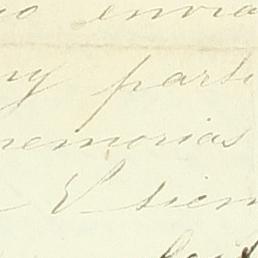 io envia
ny parti
memorias
V siem